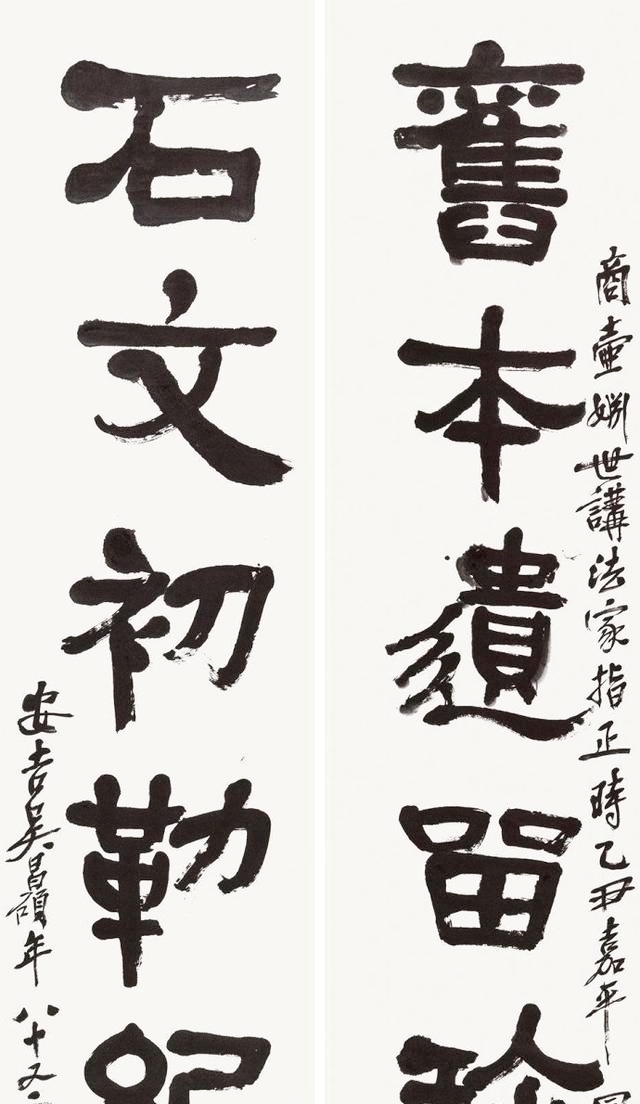 商壺世講法家指正時乙丑嘉平
舊本遺留珍
石文初勒紀
安吉吳昌碩年八十又